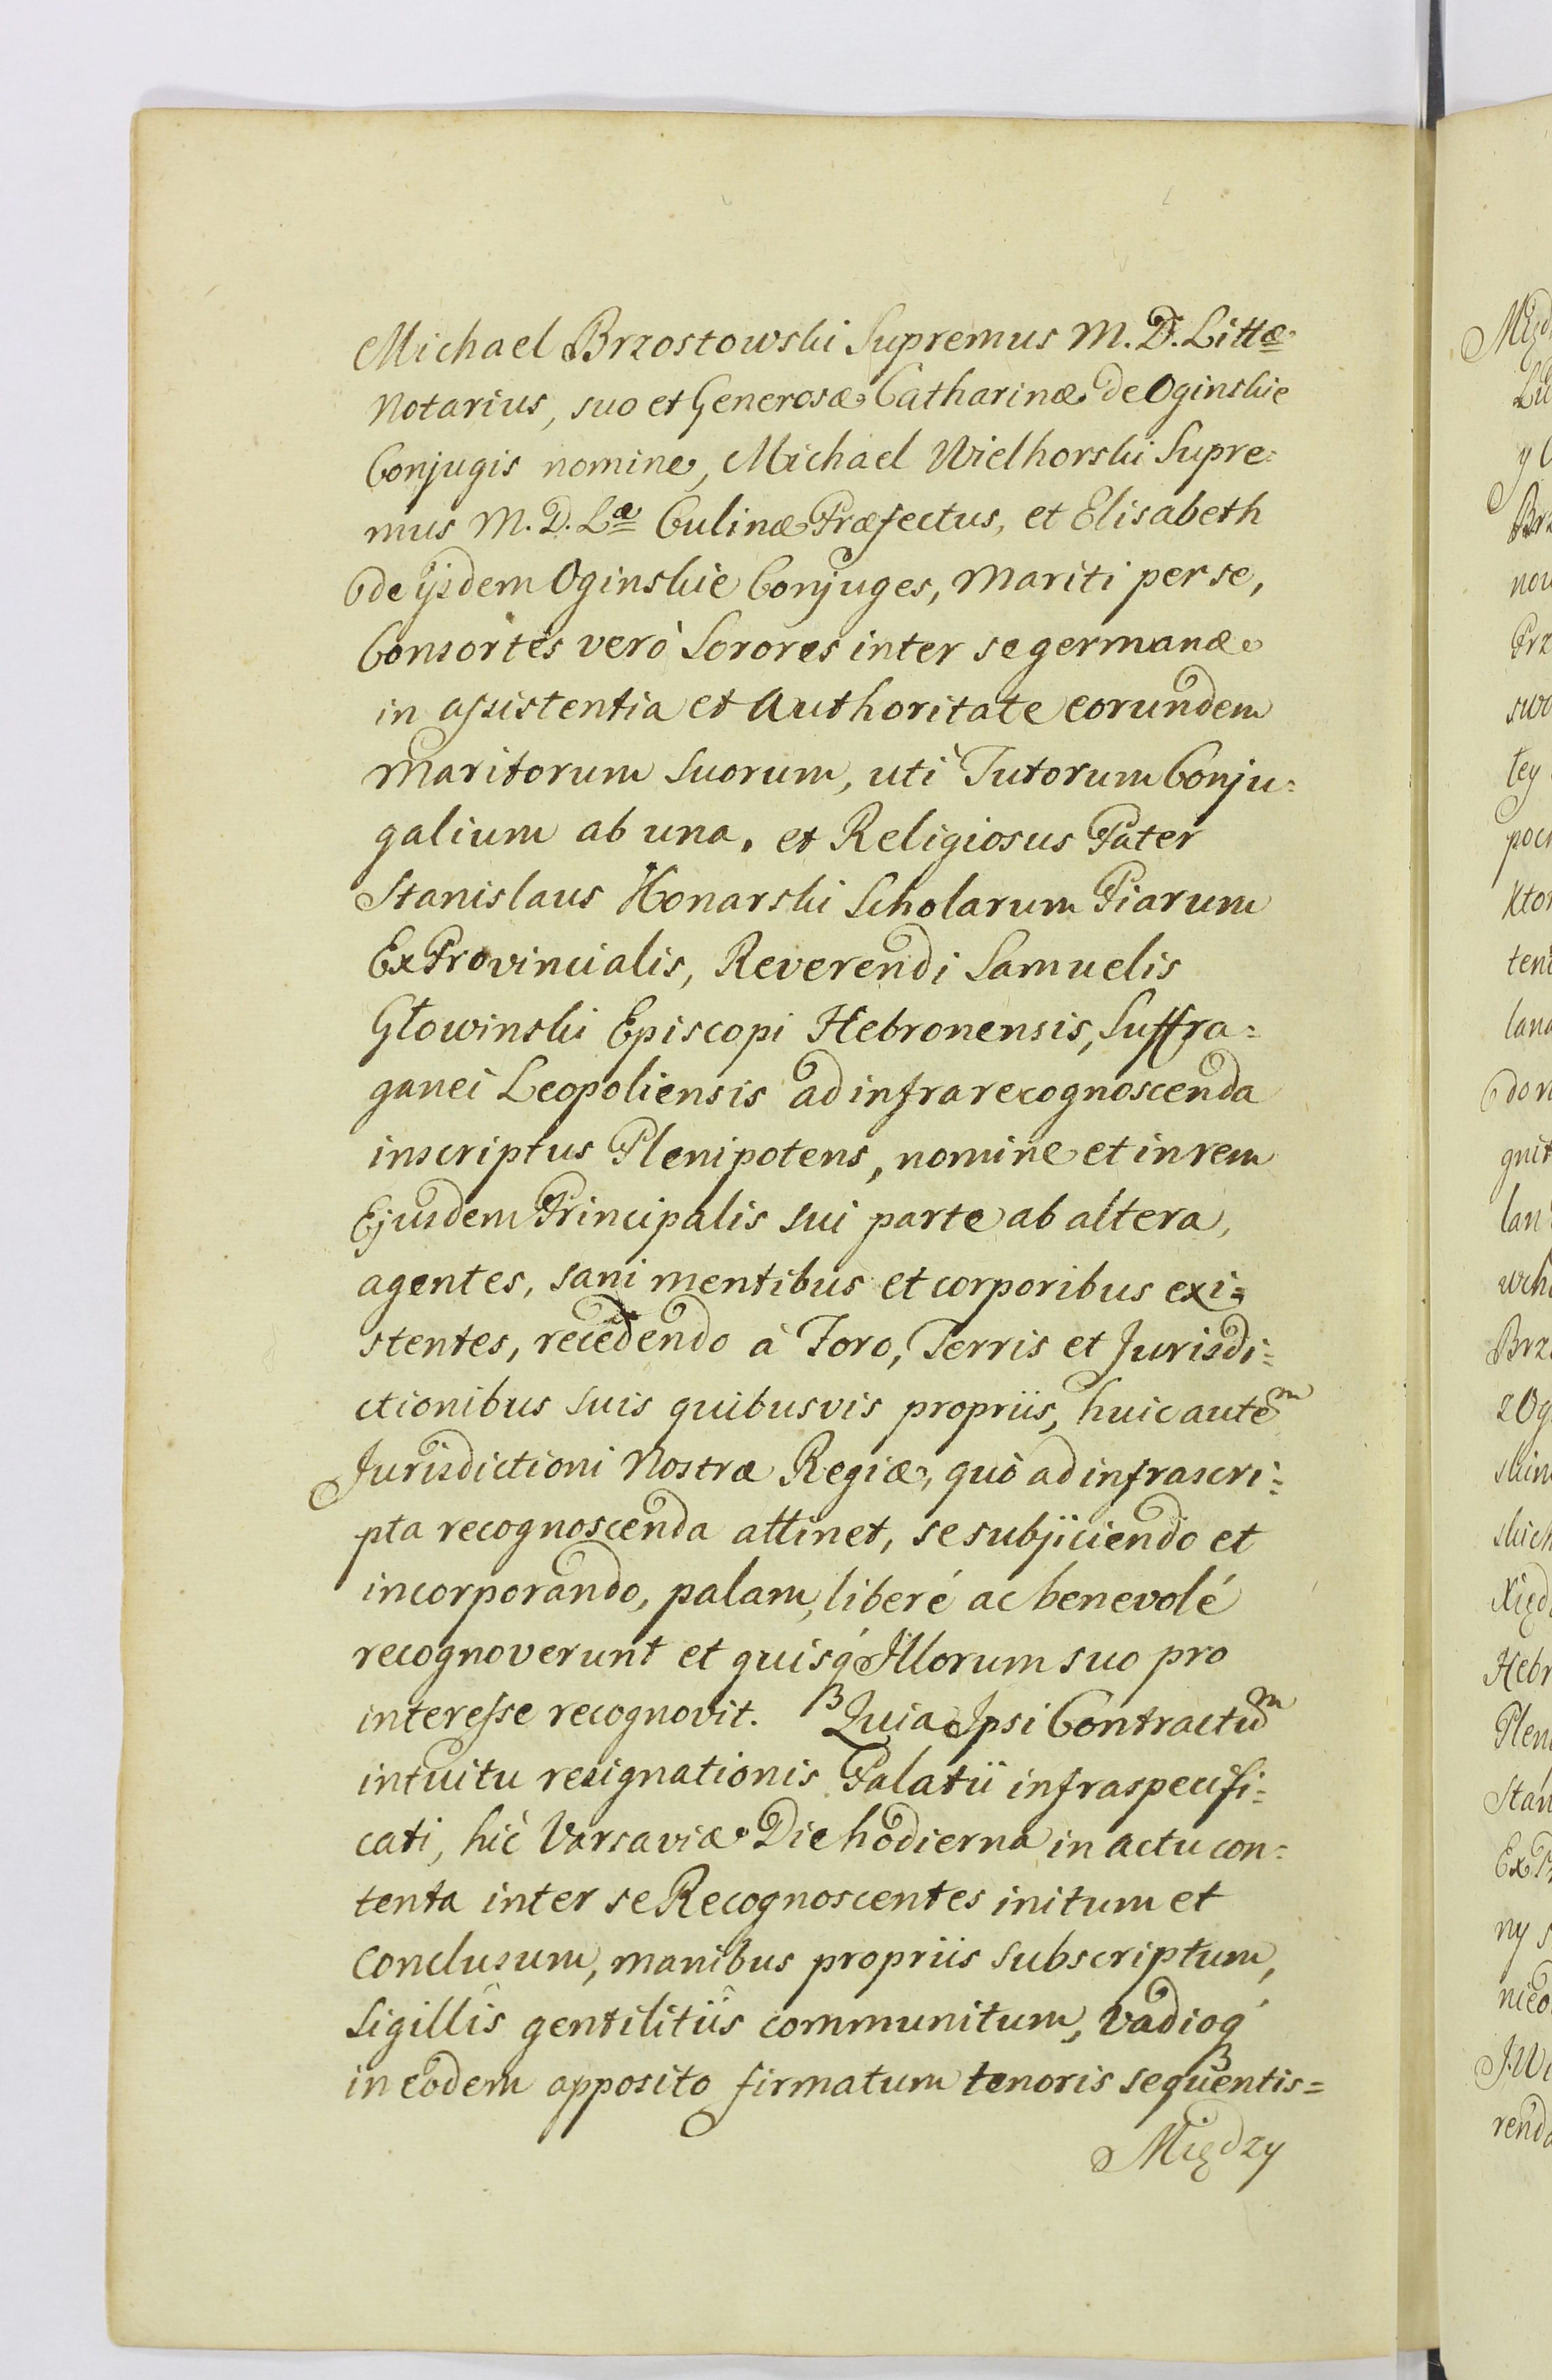 Michael Brzostowski Supremus M. D. Littæ
Notarius, suo et Generosæ Catharinæ de Oginskie
Conjugis nomine, Michael Wielhorski Supre=
mus M. D. Læ Culinæ Præfectus, et Elisabeth
de ijsdem Oginskie Conjuges, Mariti per se,
Consortes verò Sorores inter se germanæ
in assistentia et Authoritate eorundem
Maritorum suorum, uti Tutorum Conju=
galium ab una, et Religiosus Pater
Stanislaus Konarski Scholarum Piarum
ExProvincialis, Reverendi Samuelis
Głowinski Episcopi Hebronensis, Suffra=
ganei Leopoliensis ad infra recognoscenda
inscriptus Plenipotens, nomine et in rem
Ejusdem Principalis sui parte ab altera,
agentes, sani mentibus et corporibus exi=
stentes, recedendo à Foro, Terris et Jurisdi=
ctionibus suis quibusvis propriis, huic autem
Jurisdictioni Nostræ Regiæ, quò ad infrascri=
pta recognoscenda attinet, se subjiciendo et
incorporando, palam, liberé ac benevolé
recognoverunt et quisq́ Illorum suo pro
interesse recognovit. Quia Ipsi Contractum
intuitu resignationis Palatii infraspecifi=
cati, hîc Varsaviæ Die hodierna in actu con=
tenta inter se Recognoscentes initum et
conclusum, manibus propriis subscriptum,
Sigillîs gentilitiîs communitum, vadioq́
in eodem apposito firmatum tenoris sequentis=
Między
Międ
y
Brz
now
Prz
swo
tey
poc
kto
ten
lan
don
gnit
lan
Brz
z Og
skin
skich
Xięd
Hebr
Plen
Stan
ExP
ny s
renda